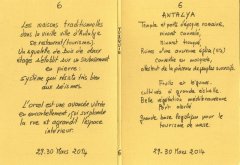 6
Les maisons traditionnelles
dans la vieille ville d'Antalya
Un squelette de bois de deux
étages s'établit sur un soubassement
en pierre :
système qui résiste très bien
aux séismes.
L'oriel est une avancée vitrée
en encorbellement, qui surplombe
la rue et agrandit l'espace
intérieur.
29.30 Mars 2014
TURQUIE
6
6
ANTALYA
Temple et porte d'époque romaine,
rivant
rivant
Ruine d'une ancienne église
convertie en mosquée,
attestent de la présence de peuples successifs.
Fruits et légumes
cultivés à grande échelle.
Belle végétation méditerranéenne
Port abrité
Grande base logistique pour le
tourisme de masse
29.30 Mars 2014